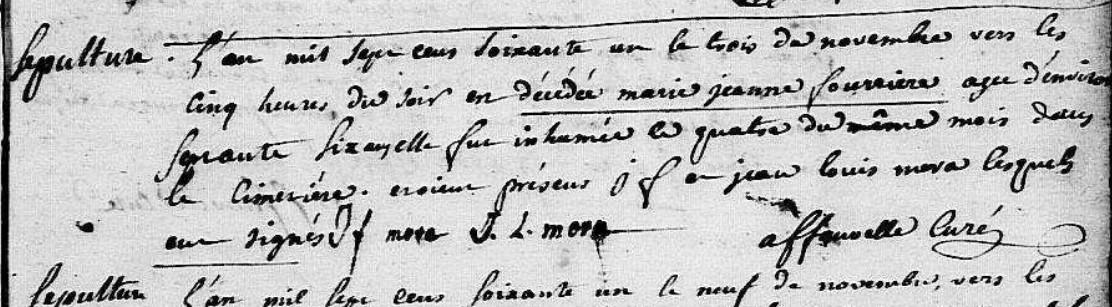 sepulture. L'an mil sept cens soixante un le trois de novembre vers les
cinq heures du soir est décédée marie jeanne fourriere agee d'environ
soixante six ans elle fut inhumée le quatre du même mois dans
le cimetiére. etoient présens j f et jean louis mora lesquels
ont signés J f mora J. L. mora curé
sepulture L'an mil sept cens soixante un le neuf de novembre, vers les